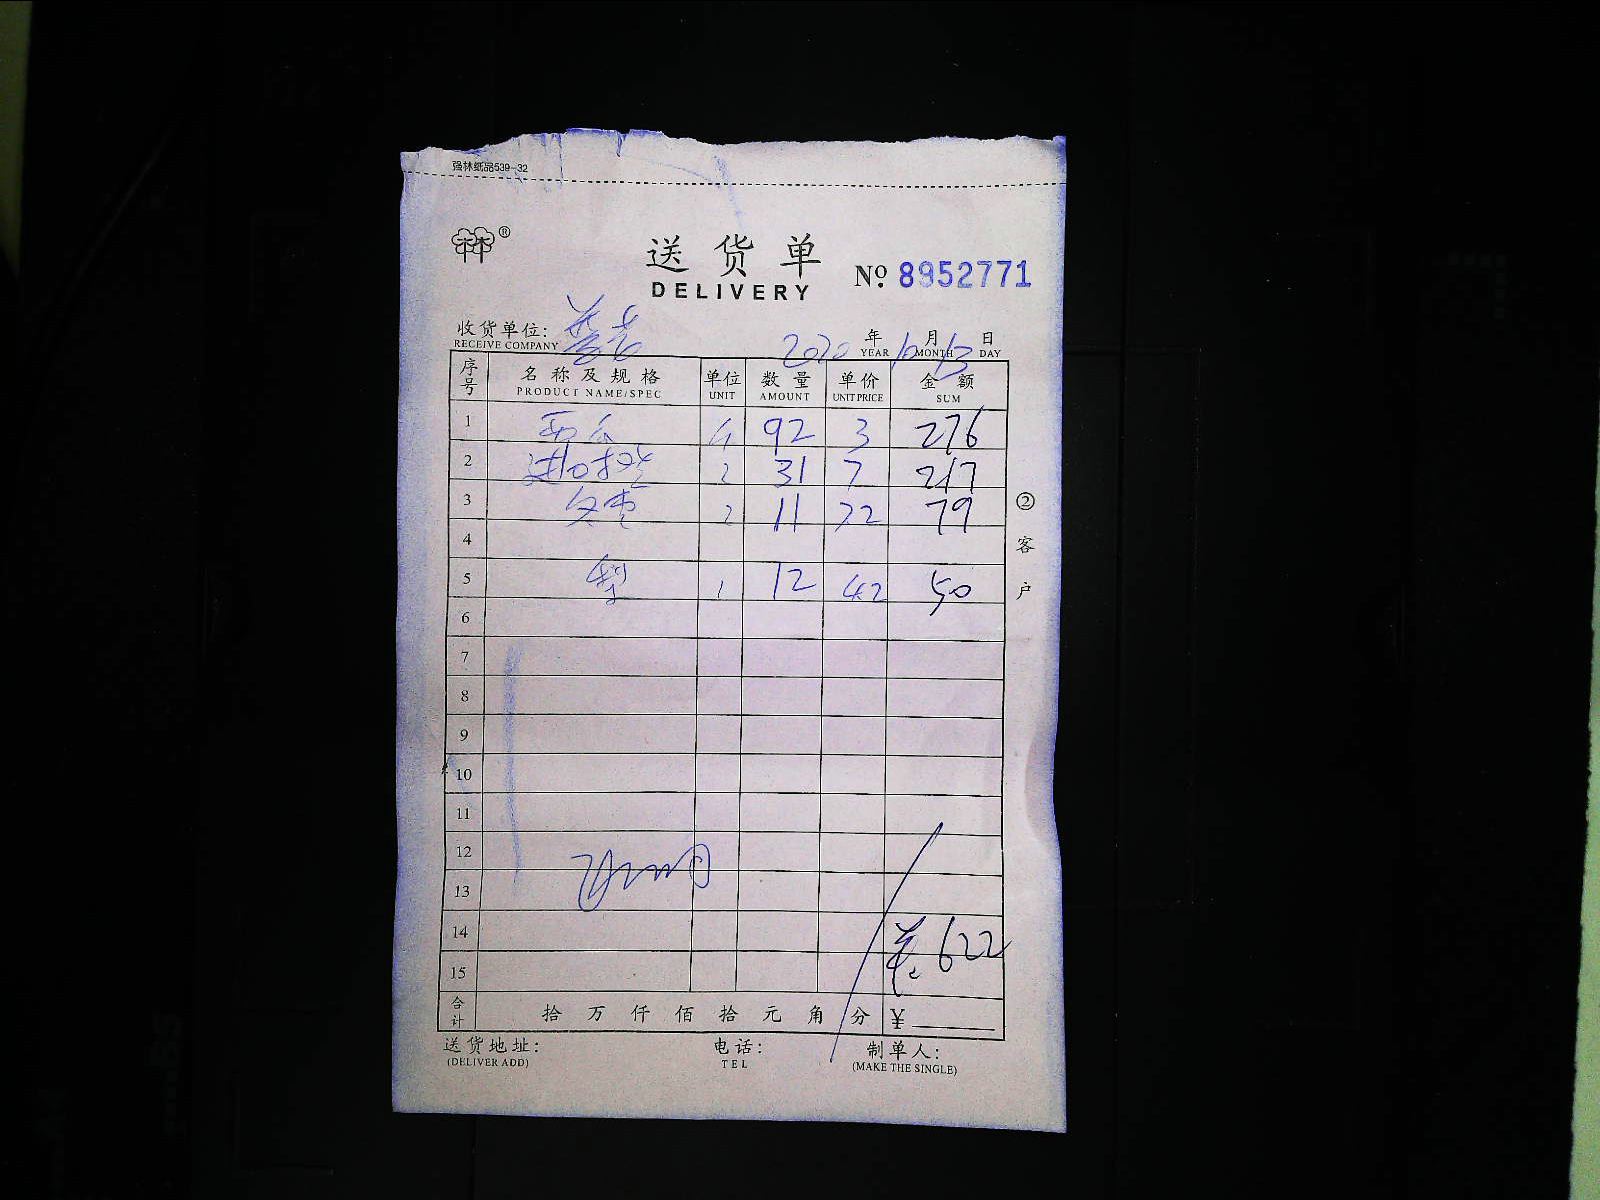 强林纸品539-32
®
送货单
DELIVERY
№ 8952771
收货单位:
RECEIVE COMPANY
2020 年 10 月 13 日
YEAR MONTH DAY
序号 名称及规格 单位 数量 单价 金额
PRODUCT NAME/SPEC UNIT AMOUNT UNIT PRICE SUM
1 西瓜 4 92 3 276
2 进口 2 31 7 217
3 冬枣 2 11 72 79
4
5 梨 1 12 42 50
6
7
8
9
10
11
12
13
14 622
15
合计 拾 万 仟 佰 拾 元 角 分 ¥
②客户
送货地址: 电话: 制单人:
(DELIVER ADD) TEL (MAKE THE SINGLE)